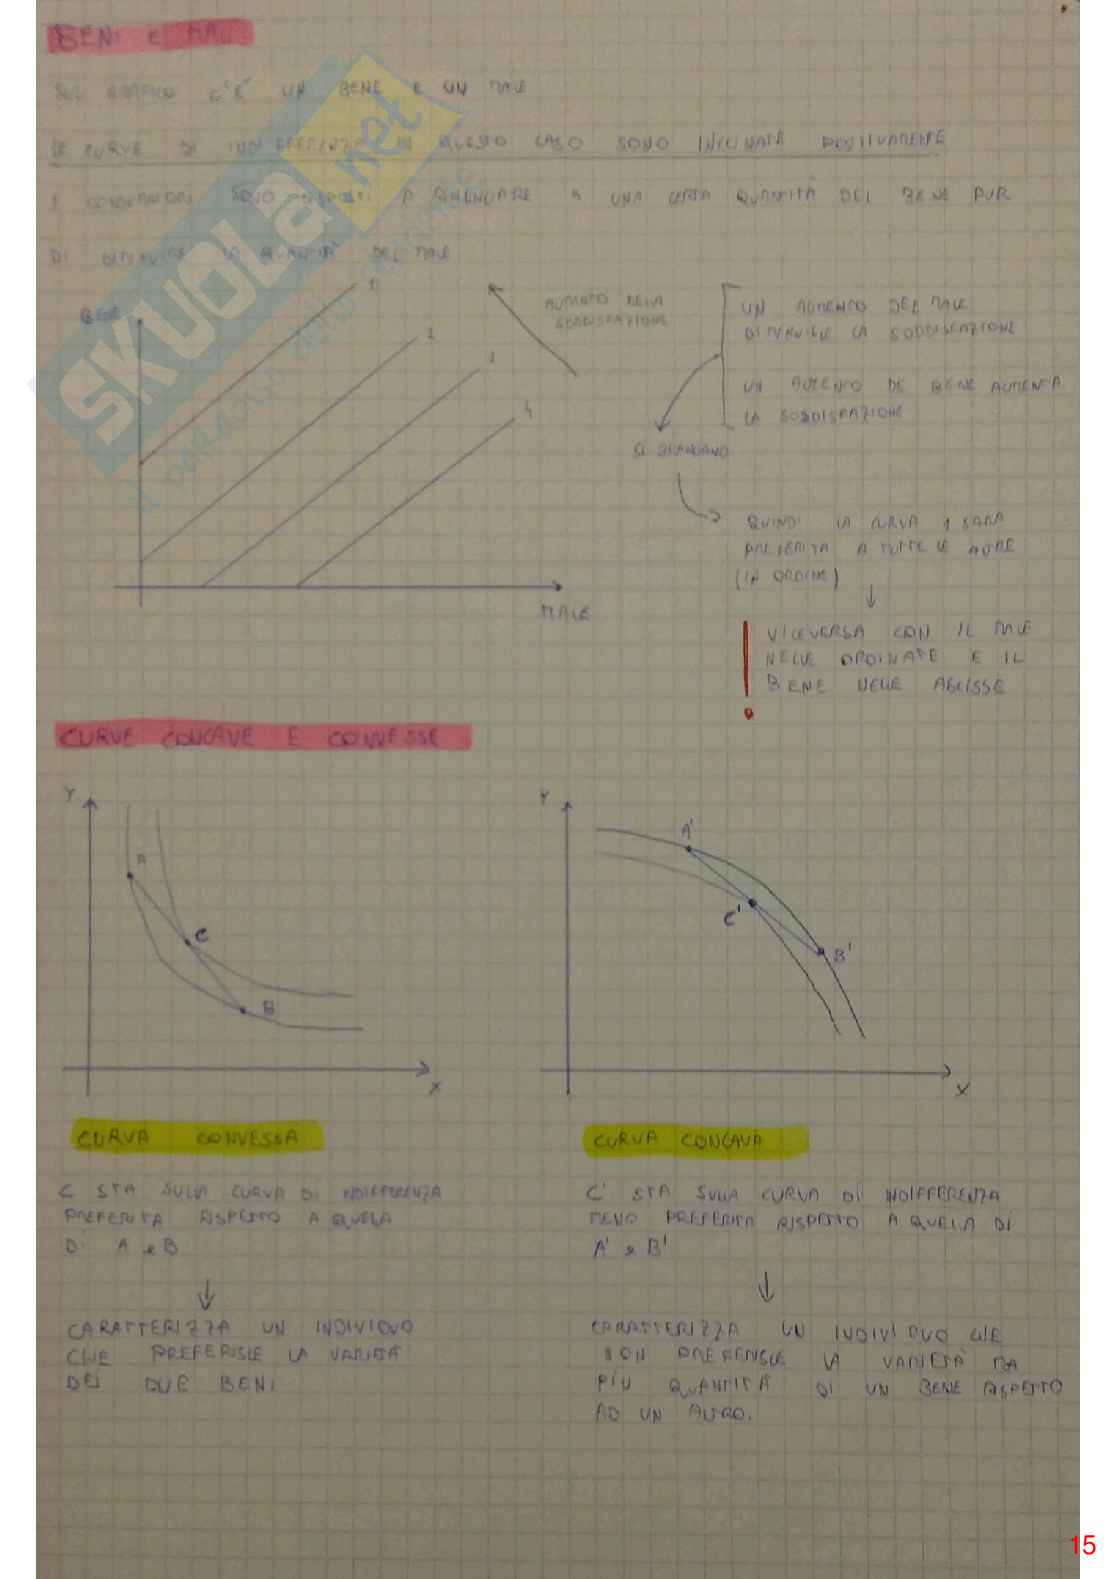 BENI E MALI
SUL GRAFICO C'È UN BENE E UN MALE
LE CURVE DI INDIFFERENZA IN QUESTO CASO SONO INCLINATE POSITIVAMENTE
I CONSUMATORI SONO DISPOSTI A RINUNCIARE A UNA CERTA QUANTITÀ DEL BENE PUR
DI DIMINUIRE LA QUANTITÀ DEL MALE
SKUOLA.net
BENE
1
2
3
4
MALE
AUMENTO DELLA
SODDISFAZIONE
UN AUMENTO DEL MALE
DIMINUISCE LA SODDISFAZIONE
UN AUMENTO DE BENE AUMENTA
LA SODDISFAZIONE
SI BILANCIANO
QUINDI LA CURVA 1 SARÀ
PREFERITA A TUTTE LE ALTRE
(IN ORDINE)
VICEVERSA CON IL MALE
NELLE ORDINATE E IL
BENE NELLE ASCISSE
CURVE CONCAVE E CONVESSE
Y
A
C
B
X
Y
A'
C'
B'
X
CURVA CONVESSA
C STA SULLA CURVA DI INDIFFERENZA
PREFERITA RISPETTO A QUELLA
DI A e B
CARATTERIZZA UN INDIVIDUO
CHE PREFERISCE LA VARIETÀ
DEI DUE BENI
CURVA CONCAVA
C' STA SULLA CURVA DI INDIFFERENZA
MENO PREFERITA RISPETTO A QUELLA DI
A' e B'
CARATTERIZZA UN INDIVIDUO CHE
NON PREFERISCE LA VARIETÀ MA
PIÙ QUANTITÀ DI UN BENE RISPETTO
AD UN ALTRO.
15